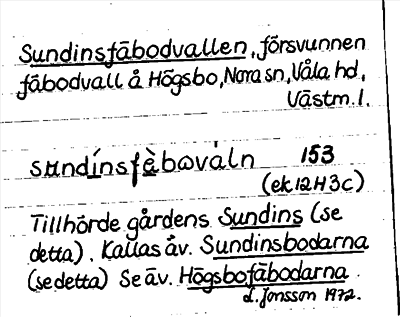 Sundinsfäbodvallen, försvunnen
fäbodvall å Högsbo, Nora sn, Våla hd,
Västm. l.
sʉndínsfὲbωvàln 153
(ek 12H3c)
Tillhörde gårdens Sundins (se
detta). Kallas äv. Sundinsbodarna
(se detta) Se äv. Högsbofäbodarna.
L. Jonsson 1972.